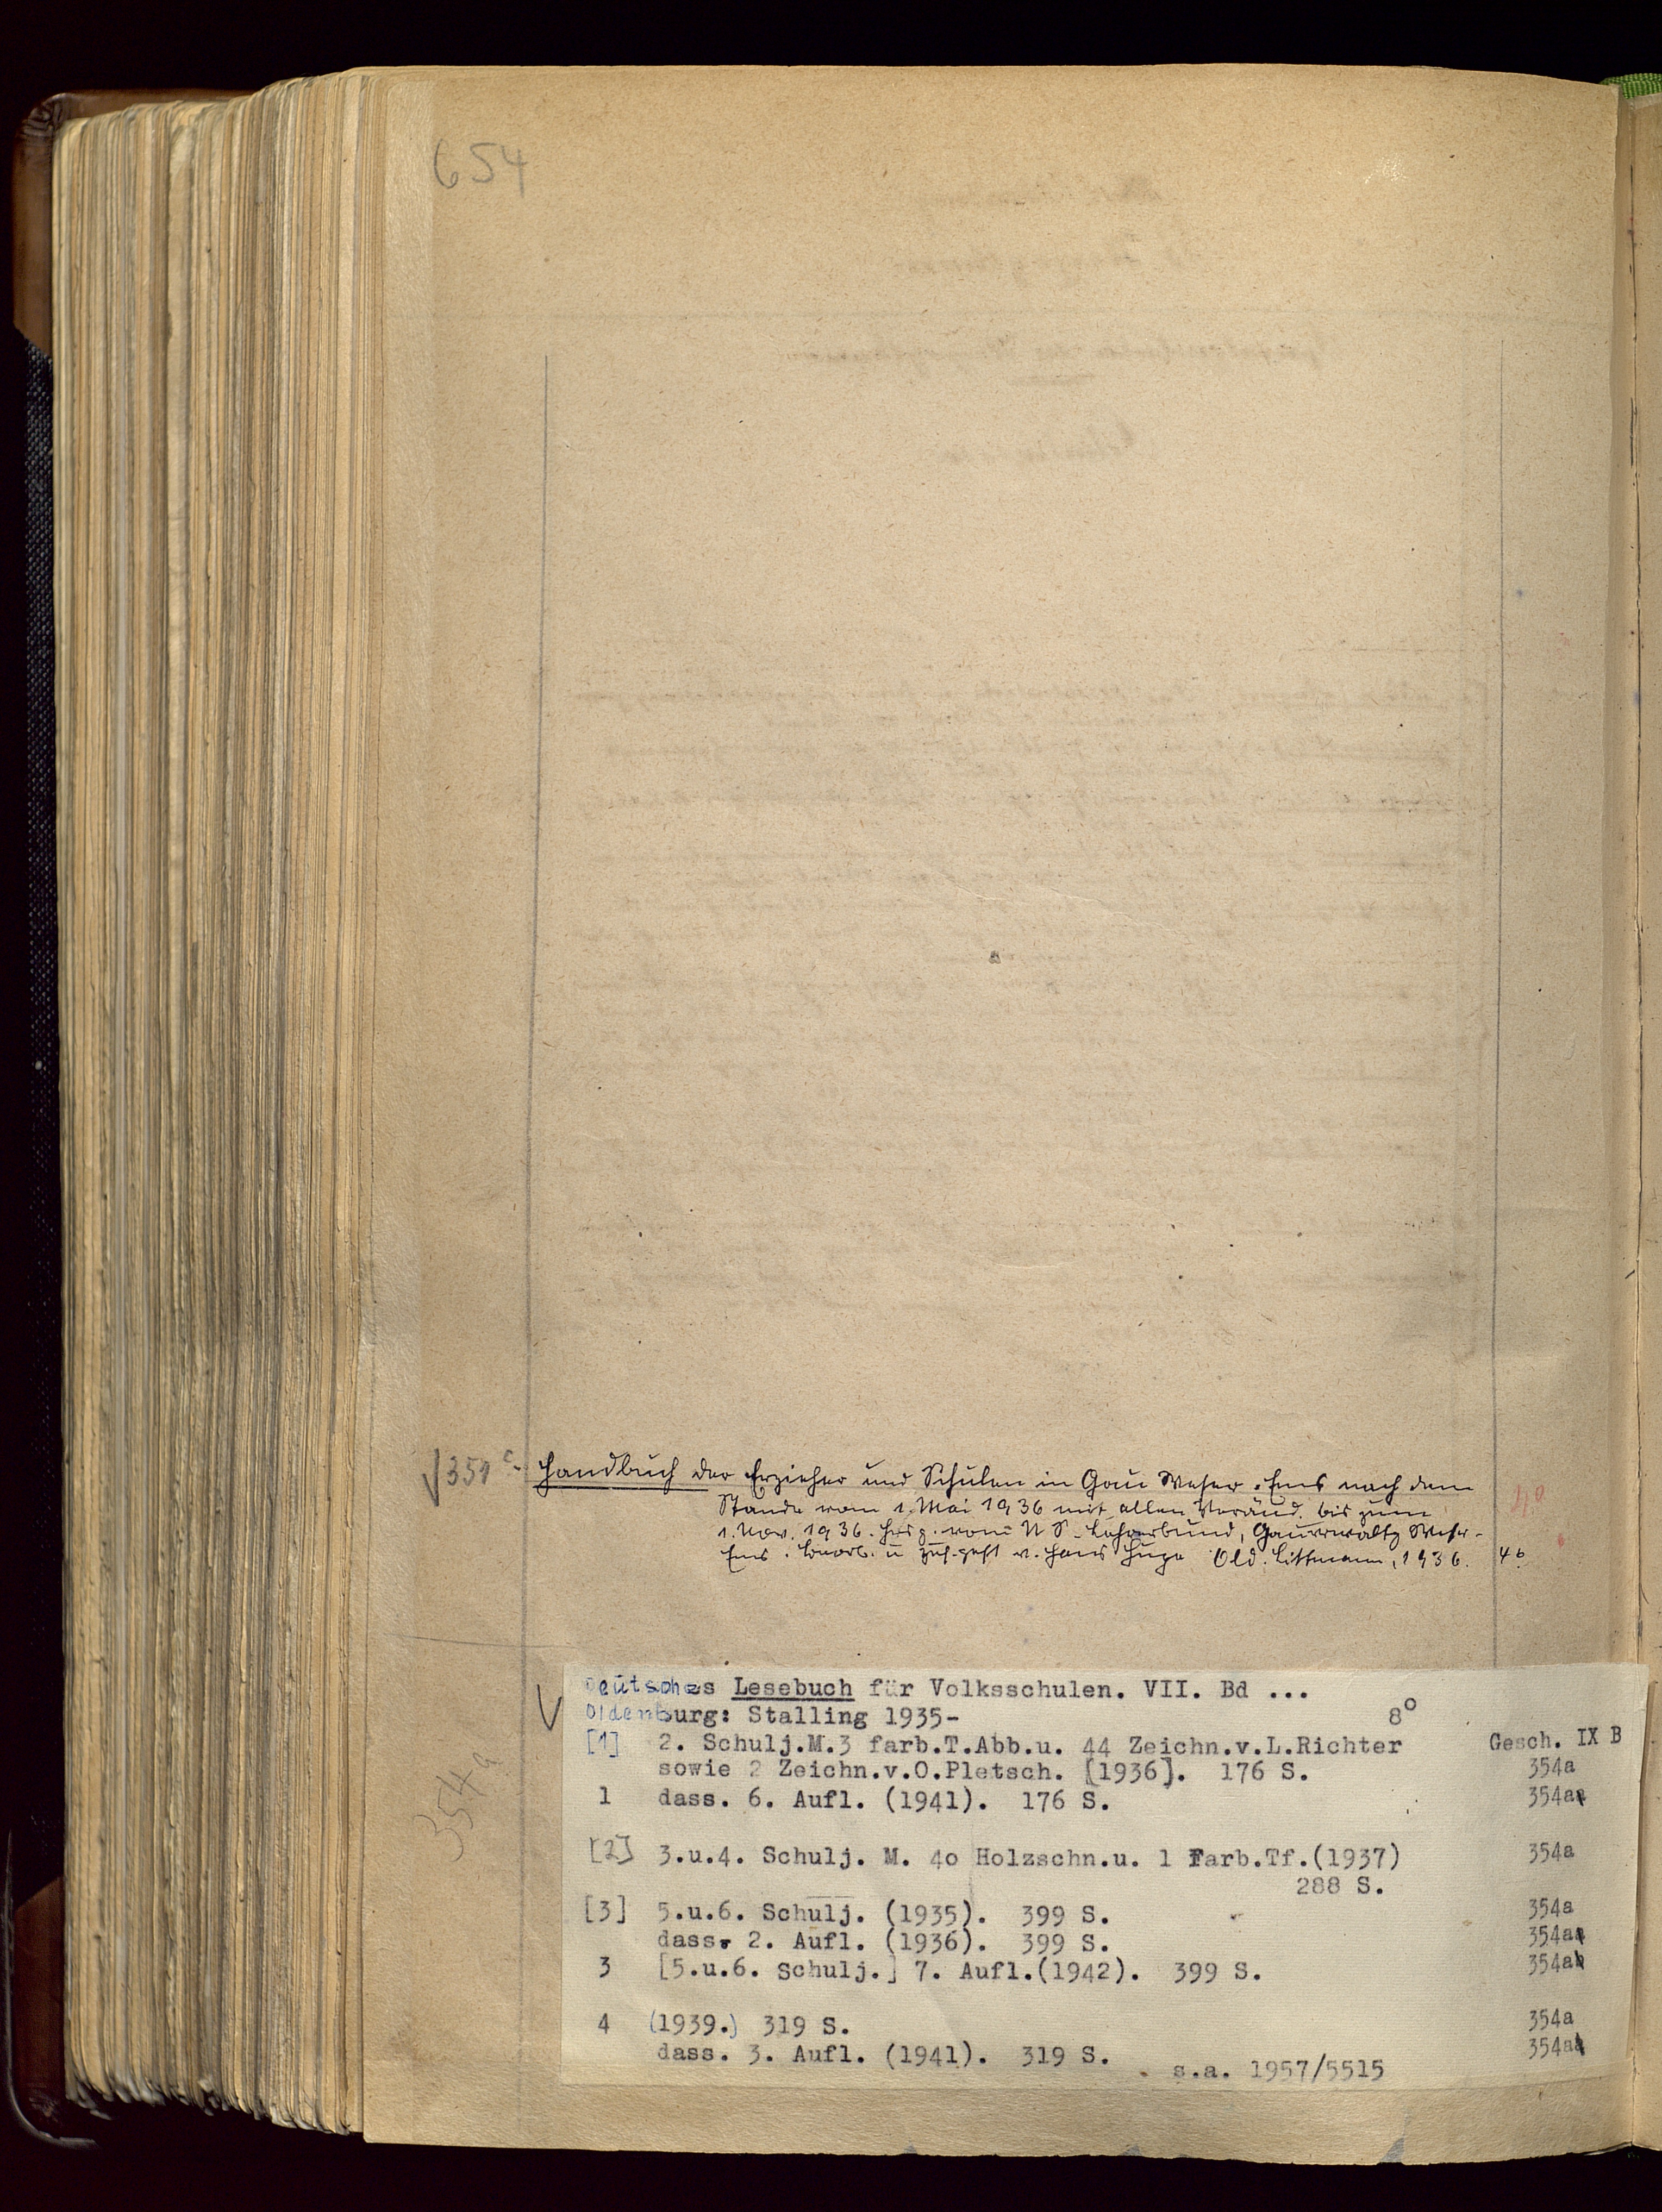 654
√351c Handbuch der Erzieher und Schulen im Gau Weser-Ems nach dem
Stande vom 1. Mai 1936 mit allen Veränd. bis zum
1. Nov. 1936. Hrsg. vom N S-Lehrerbund, Gauverwaltg Weser-
Ems. Bearb. u. zus.gest. v. Hans Huge Old. Littmann, 1936. 4°
4°
√ Deutsches Lesebuch für Volksschulen. VII. Bd ...
Oldenburg: Stalling 1935- 8°
[1] 2. Schulj.M.3 farb.T.Abb.u. 44 Zeichn.v.L.Richter Gesch. IX B
sowie 2 Zeichn.v.O.Pletsch. [1936]. 176 S. 354a
1 dass. 6. Aufl. (1941). 176 S. 354aa
354a
[2] 3.u.4. Schulj. M. 40 Holzschn.u. 1 Farb.Tf.(1937) 354a
288 S.
[3] 5.u.6. Schulj. (1935). 399 S. 354a
dass. 2. Aufl. (1936). 399 S. 354aa
3 [5.u.6. Schulj.] 7. Aufl.(1942). 399 S. 354ab
4 (1939.) 319 S. 354a
dass. 3. Aufl. (1941). 319 S. 354aa
s.a. 1957/5515